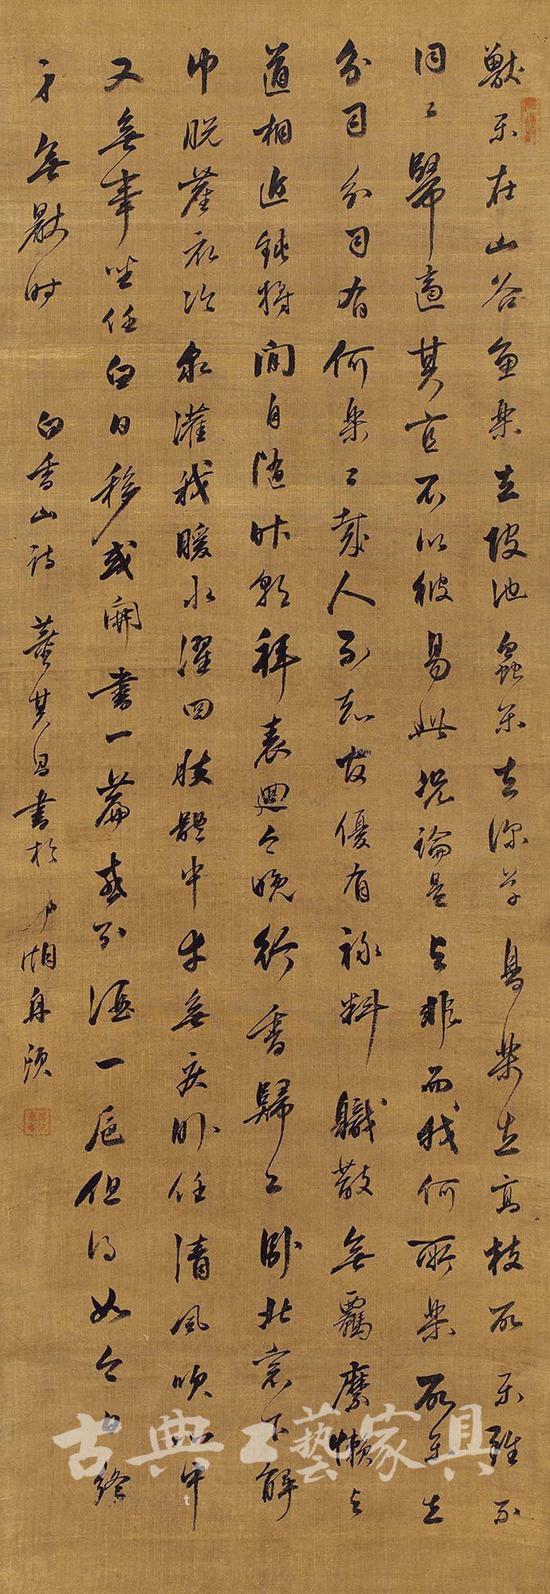 獸樂在山谷魚樂在陂池蟲樂在深草鳥樂在高枝所樂雖不
同々歸適其宜不以彼易此況論是與非而我何所樂所樂在
分司分司有何樂々哉人不知官優有祿料職散無羈縻懶與
道相近鈍將閒自隨昨朝拜表迴今晚行香歸々臥北窗下解
巾脫塵衣冷泉灌我暖水濯四肢體中幸無疾臥任清風吹心中
又無事坐任白日移或開書一篇或酒一卮但得如今日終
身無厭時 白香山詩 董其昌書於湖舟次
古典工藝家具